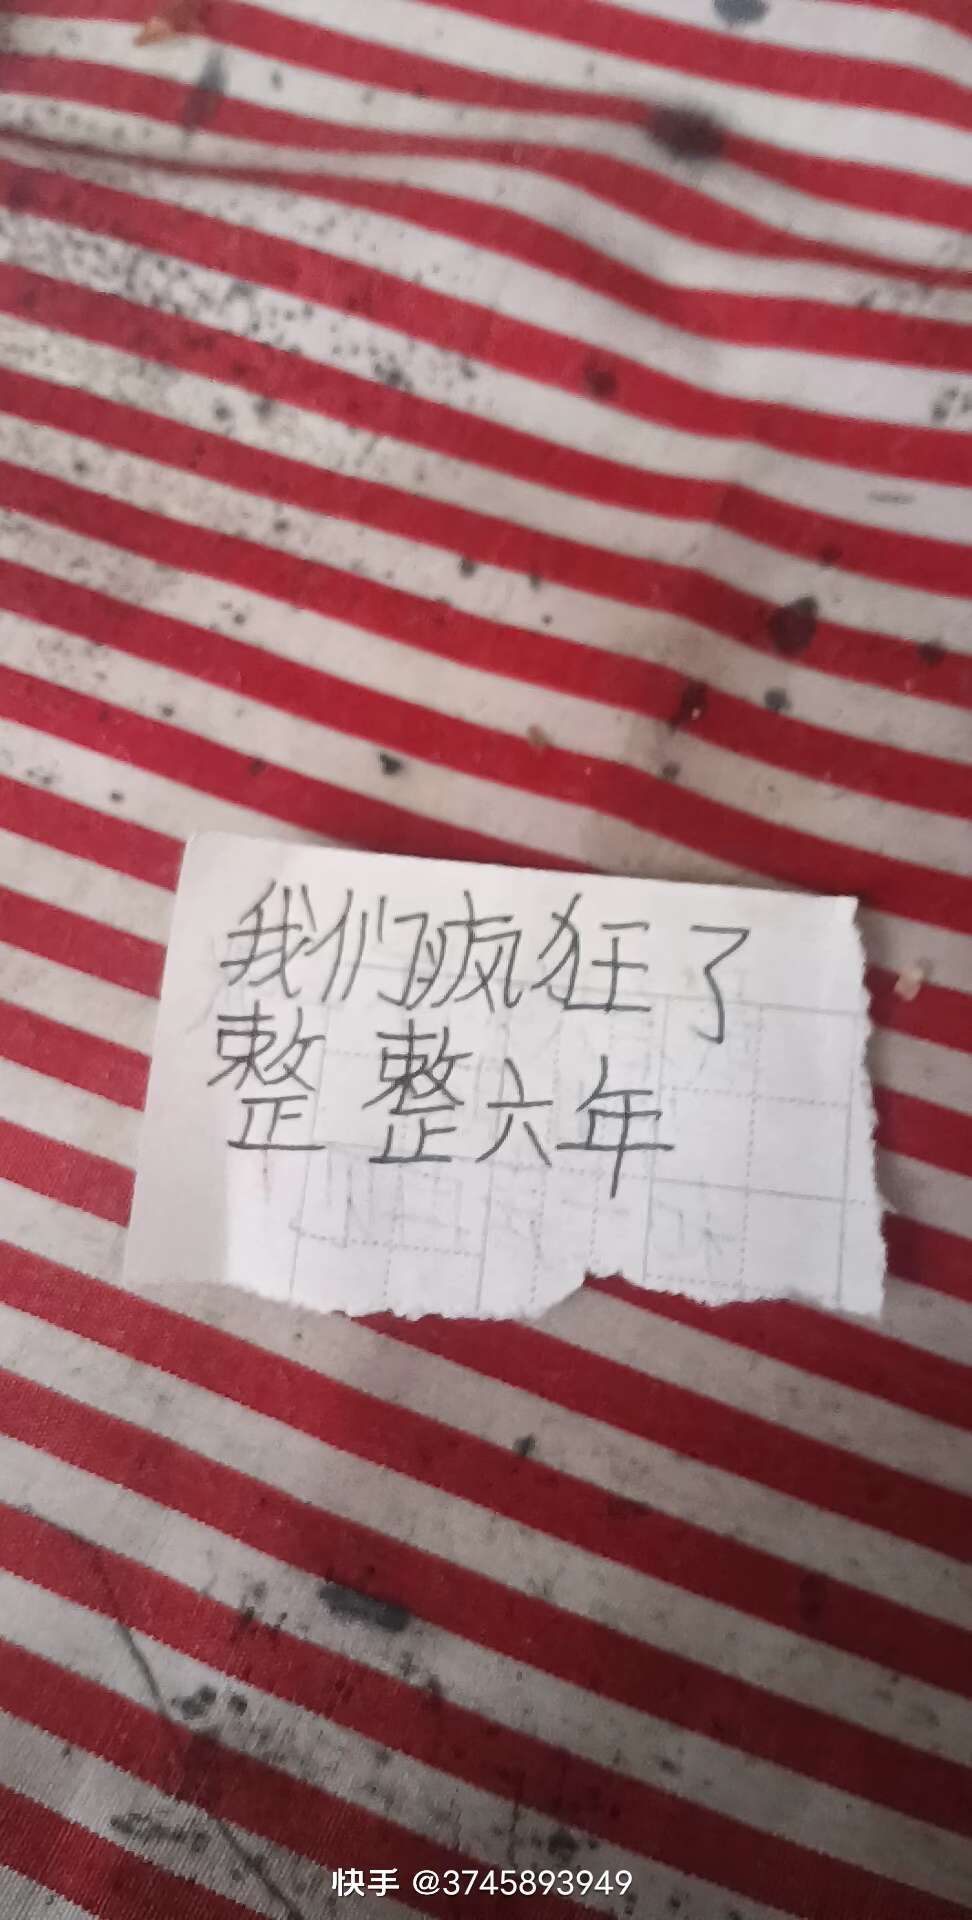 我们疯狂了
整整六年
快手 @3745893949